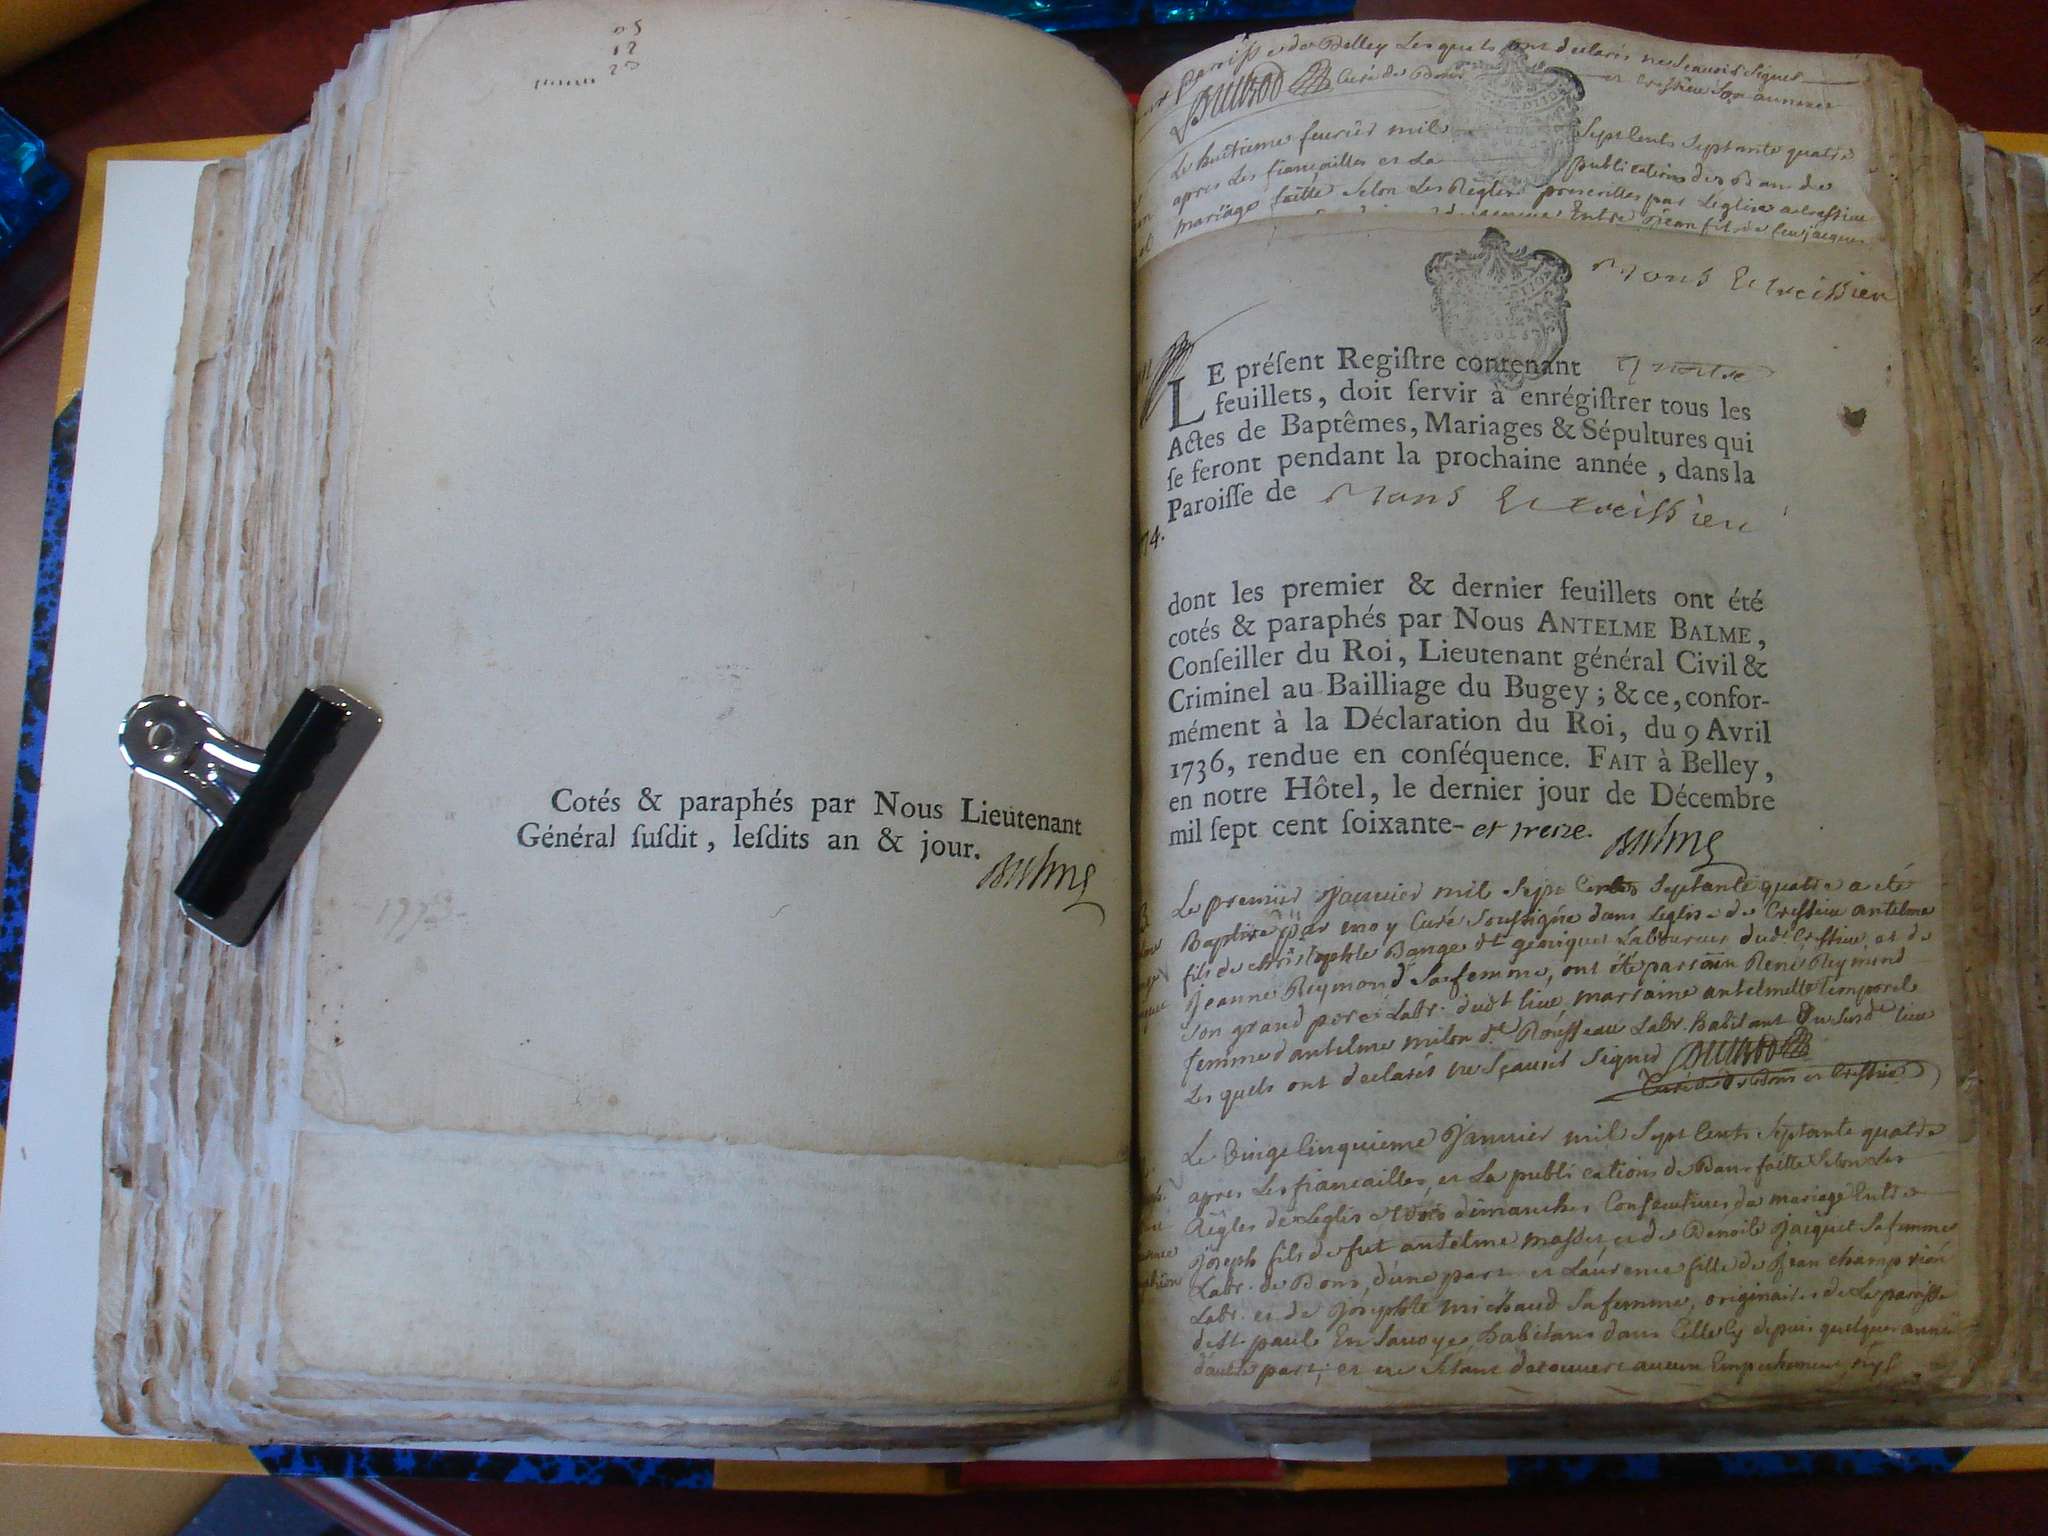 05
12
Cotés & paraphés par Nous Lieutenant
Général ſuſdit, leſdits an & jour.
Balme
Paroisse de Belley Lesquels ont declarés ne scavoir signer
curé de Bons et Cressieu son annexe
Le huitieme fevrier mil Sept Cents Septante quatre
apres Les fiançailles et La publications des Bans de
mariage faitte Selon Les Regles prescrittes par Leglise a Cressieu
Entre Jean fils de feu jacques
Mons Et Creissieu
LE préſent Regiſtre contenant quatre
feuillets, doit ſervir à enrégiſtrer tous les
Actes de Baptêmes, Mariages & Sépultures qui
ſe feront pendant la prochaine année, dans la
Paroiſſe de Mons Et Creissieu
74.
dont les premier & dernier feuillets ont été
cotés & paraphés par Nous ANTELME BALME,
Conſeiller du Roi, Lieutenant général Civil &
Criminel au Bailliage du Bugey; & ce, confor-
mément à la Déclaration du Roi, du 9 Avril
1736, rendue en conſéquence. FAIT à Belley,
en notre Hôtel, le dernier jour de Décembre
mil ſept cent ſoixante- et treize. Balme
Le premier Janvier mil Sept Cents Septante quatre a été
Baptise par moy Curé Soussigne dans Leglise de Cressieu antelme
fils de christophle Bange dt Laboureur dudt Cressieu et de
Jeanne Reymond Sa femme, ont été parrain René Reymond
Son grand pere Labr. dudt lieu marraine antelmette Temporel
femme d'antelme milon dt Rousseau Labr. habitant du susdt lieu
Les quels ont declarés ne Sçavoir Signer
Curé de Bons et Cressieu
Le Vingt Cinquieme Janvier mil Sept Cents Septante quatre
apres Les fiancailles, et La publications de Bans faitte Selon Les
Regles de Leglise trois dimanches Consecutives du mariage Entre
Joseph fils de fut antelme masset et de Benoite Jacquet Sa femme
Labr. de Bons, d'une part et Laurence fille de Jean champrion
Labr. et de Josephte michaud Sa femme, originaires de La paroisse
de St. paul En Savoye habitans dans Celle Cy depuis quelques année
d'autre part; et ne S'étant decouvert aucun Empechement